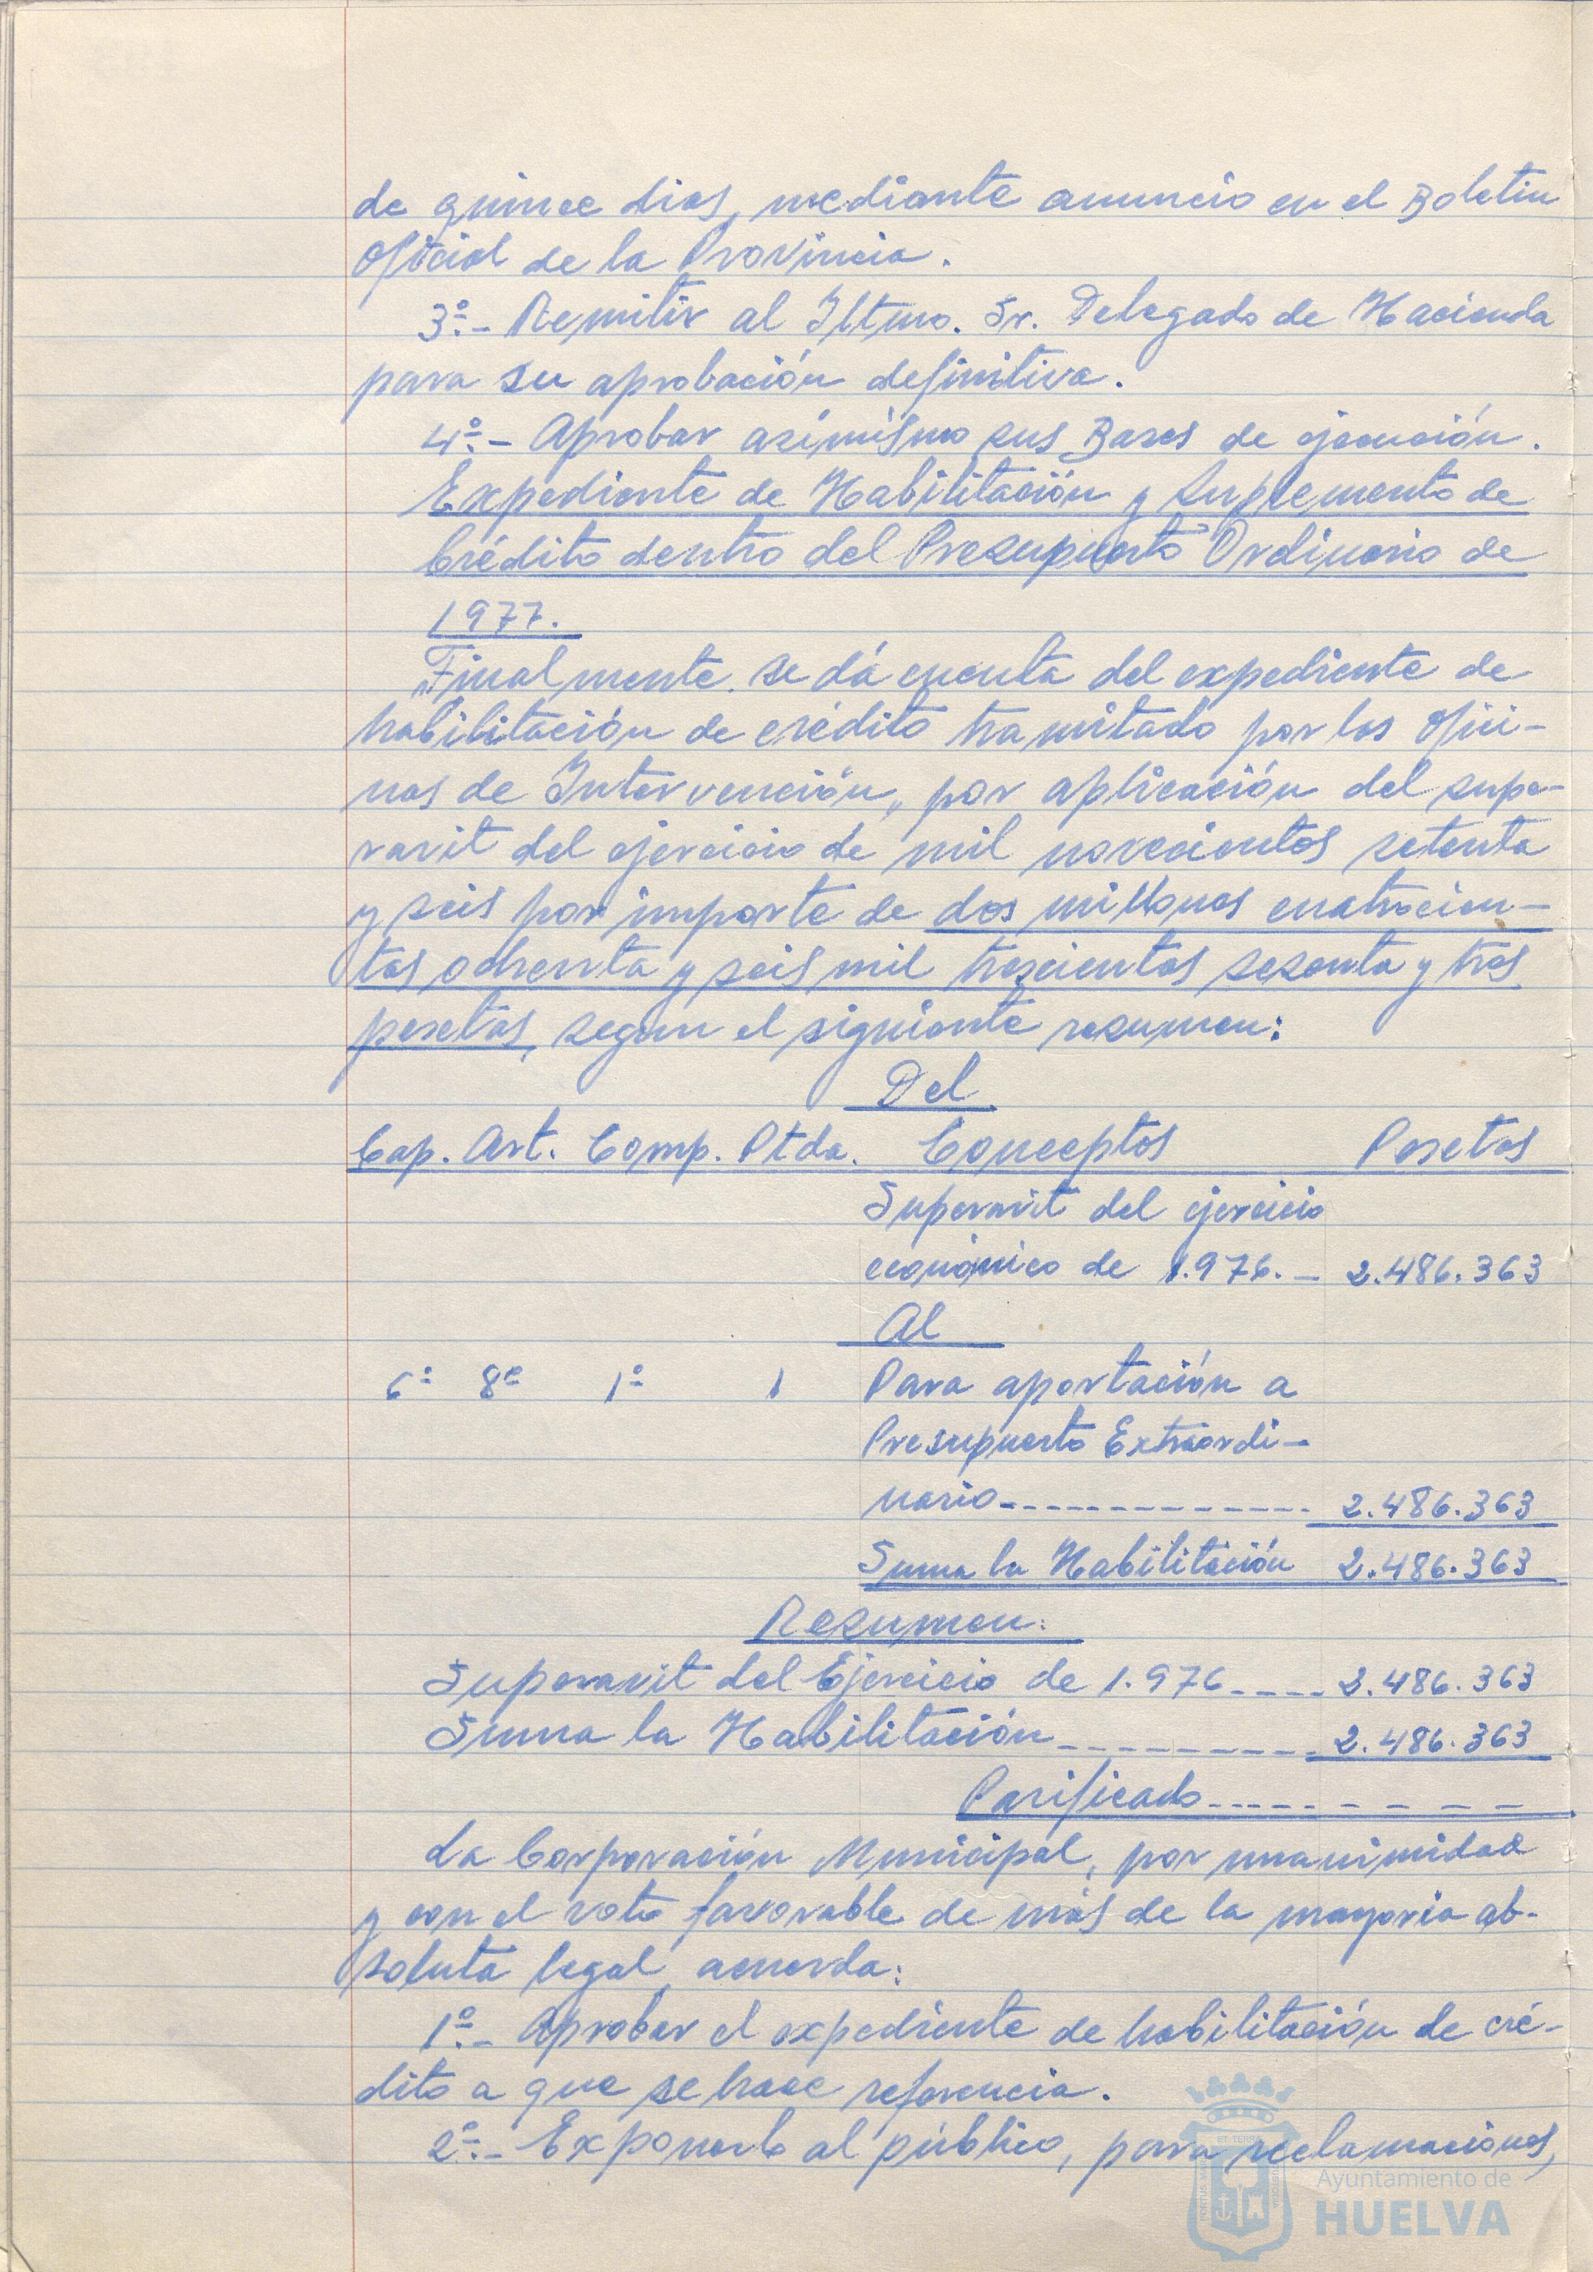 de quince dias, mediante anuncio en el Boletin
Oficial de la Provincia.
3º.- Remitir al Iltmo. Sr. Delegado de Hacienda
para su aprobación definitiva.
4º.- Aprobar asímísmo sus Bases de ejecución.
Expediente de Habilitación y Suplemento de
Crédito dentro del Presupuesto Ordinario de
1977.
Finalmente se dá cuenta del expediente de
habilitación de crédito tramitado por las Ofici-
nas de Intervención, por aplicación del supe-
ravit del ejercicio de mil novecientos setenta
y seis por importe de dos millones cuatrocien-
tas ochenta y seis mil trescientas sesenta y tres
pesetas, segun el siguiente resumen:
Del
Cap. Art. Comp. Ptda. Conceptos Pesetas
Superavit del ejercicio
económico de 1.976.- 2.486.363
Al
6º 8º 1º 1 Para aportación a
Presupuesto Extraordi-
nario------------- 2.486.363
Suma la Habilitación 2.486.363
Resumen:
Superavit del Ejercicio de 1.976---- 2.486.363
Suma la Habilitación--------- 2.486.363
Parificado---- - - - -
La Corporación Municipal, por unanimidad
y con el voto favorable de más de la mayoria ab-
soluta legal, acuerda:
1º.- Aprobar el expediente de habilitación de cré-
dito a que se hace referencia.
2º.- Exponerlo al público, para reclamaciones,
Ayuntamiento de
HUELVA